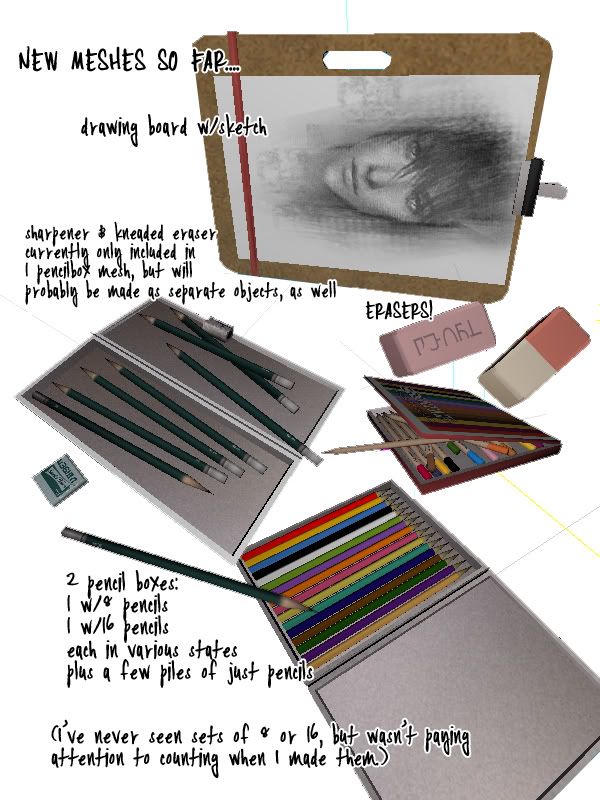 NEW MESHES SO FAR....
drawing board w/sketch
sharpener & kneaded eraser
currently only included in
1 pencilbox mesh, but will
probably be made as separate objects, as well
ERASERS!
2 pencil boxes:
1 w/8 pencils
1 w/16 pencils
each in various states
plus a few piles of just pencils
(I've never seen sets of 8 or 16, but wasn't paying
attention to counting when I made them.)